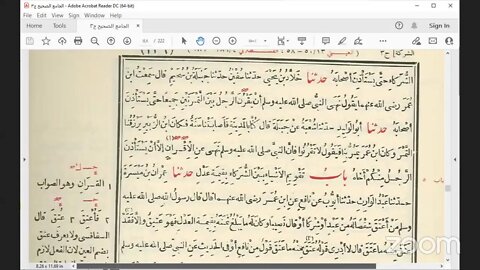 الجامع الصحيح ج٣ - Adobe Acrobat Reader DC (64-bit)
File Edit View Sign Window Help
Home Tools
الجامع الصحيح ج٣ ×
Sign In
/ 222
الشركاء حتى يستأذن أصحابه حدثنا خلاد بن يحيى حدثنا سفين حدثنا جبلة بن سحيم قال سمعت ابن
عمر رضي الله عنهما يقول نهى النبي صلى الله عليه وسلم أن يقرن الرجل بين التمرتين جميعا حتى يستأذن
أصحابه حدثنا أبو الوليد حدثنا شعبة عن جبلة قال كنا بالمدينة فأصابتنا سنة فكان ابن الزبير يرزقنا
التمر وكان ابن عمر يمر بنا فيقول لا تقرنوا فإن النبي صلى الله عليه وسلم نهى عن الإقران إلا أن يستأذن
الرجل منكم أخاه باب تقويم الأشياء بين الشركاء بقيمة عدل حدثنا عمران بن ميسرة
حدثنا عبد الوارث حدثنا أيوب عن نافع عن ابن عمر رضي الله عنهما قال قال رسول الله صلى الله عليه
وسلم من أعتق شقصا له من عبد أو شركا أو قال نصيبا وكان له ما يبلغ ثمنه بقيمة العدل فهو عتيق وإلا فقد
عتق منه ما عتق قال لا أدري قوله عتق منه ما عتق قول من نافع أو في الحديث عن النبي صلى الله عليه
١ القران وهو الصواب
٢ فأعتق ٣ عتق قال
السفاقسي ولا يعرف عتق
بضم العين لأن الفعل لازم
8.28 x 11.69 in
zoom